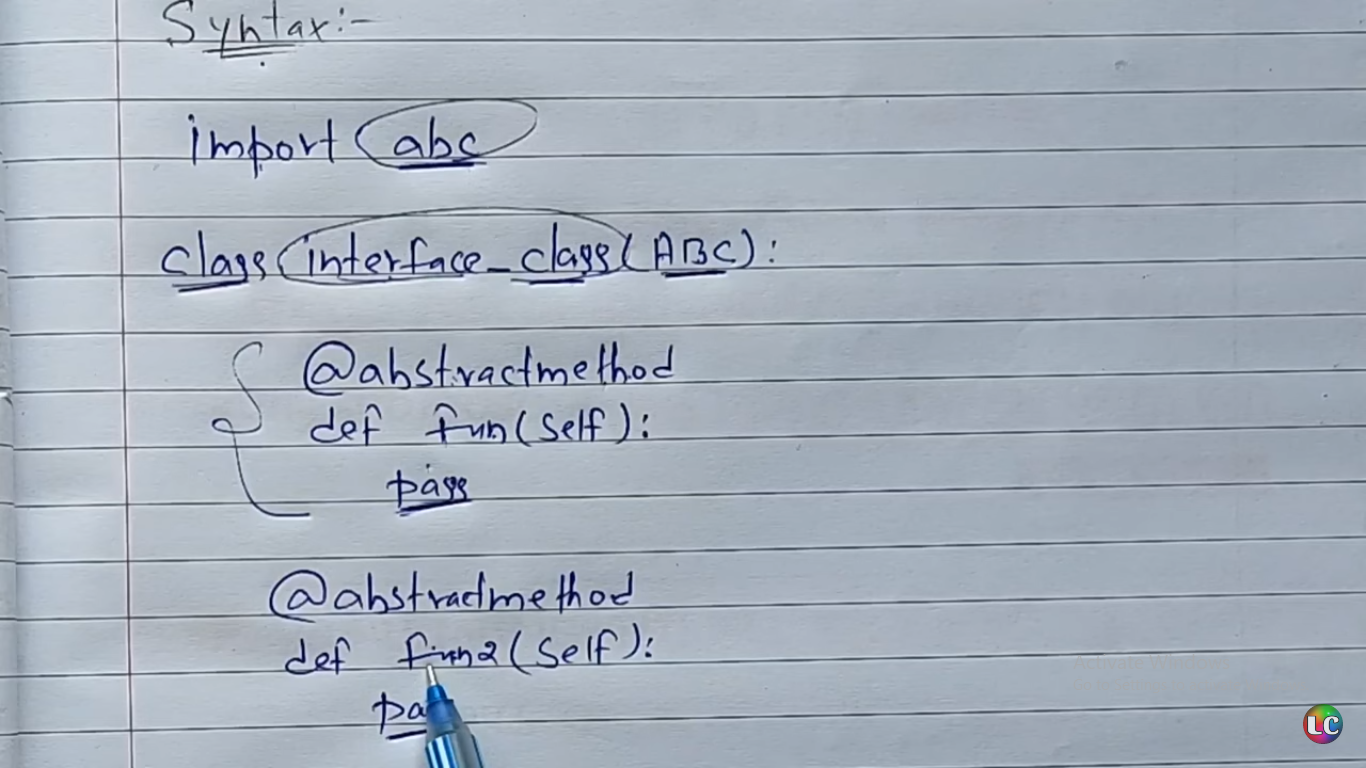 Syntax:-
import abc
class interface_class(ABC):
@abstractmethod
def fun(self):
pass
@abstractmethod
def fun2(self):
LC